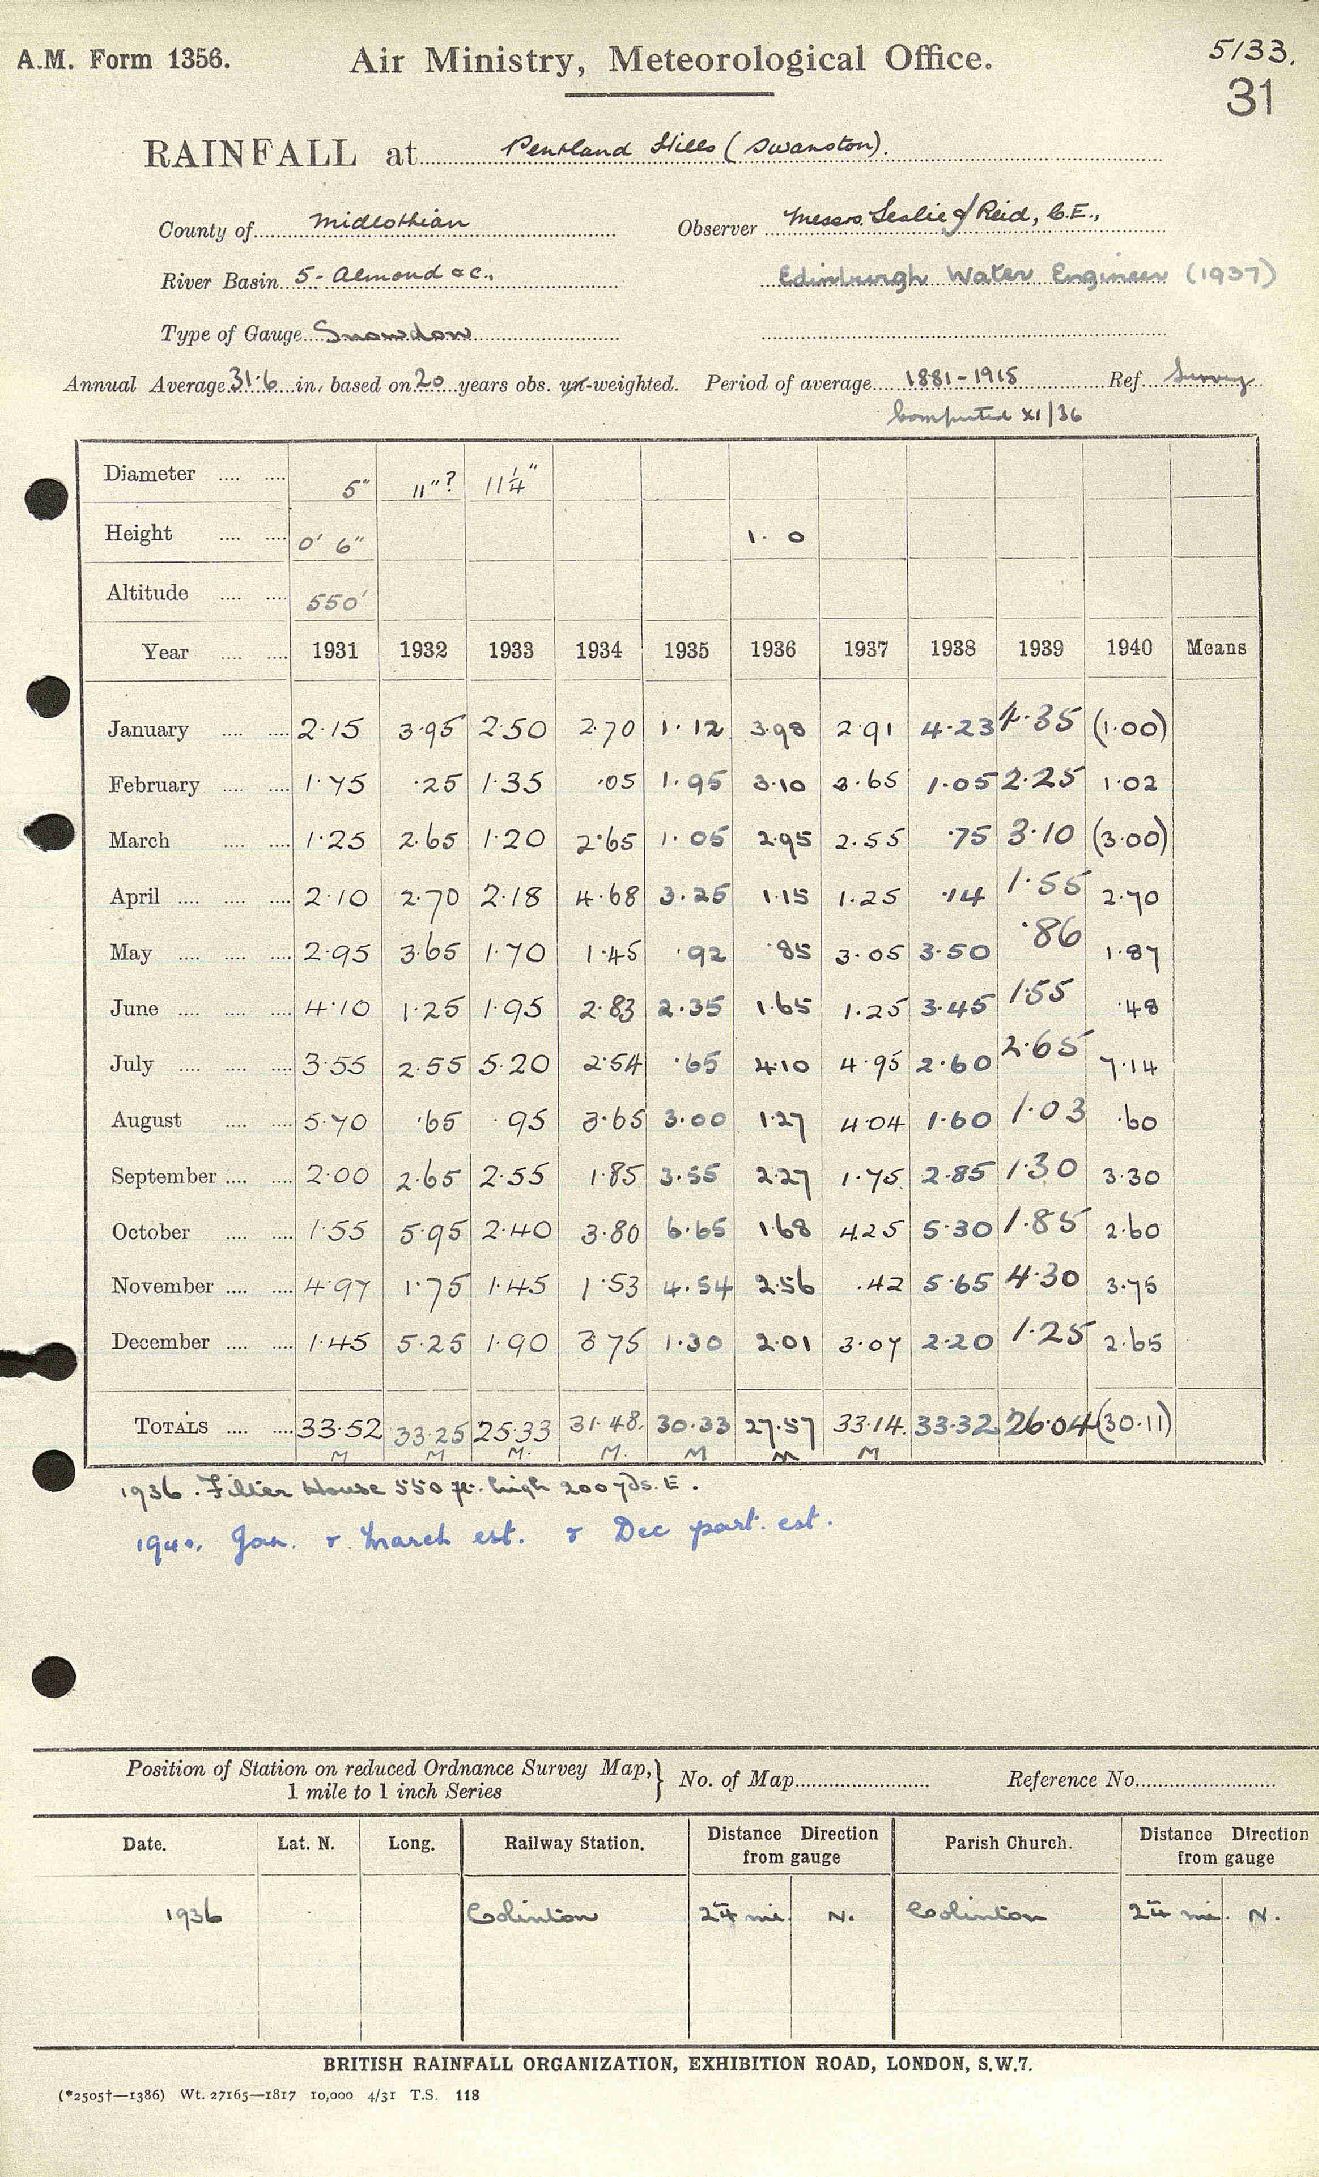 A.M. Form 1356. Air Ministry, Meteorological Office. 5133.
31
RAINFALL at Pentland Hills (Swanston).
County of Midlothian Observer Messrs. Leslie & Reid, C.E.,
River Basin 5- Almond &c., Edinburgh Water Engineer (1937)
Type of Gauge Snowdon
Annual Average 31·6 in. based on 20 years obs. un-weighted. Period of average 1881-1915 Ref. Survey
Computed XI/36
Diameter .... .... 5" 11"? 11¼"
Height .... .... 0' 6" 1· 0
Altitude .... .... 550'
Year .... .... 1931 1932 1933 1934 1935 1936 1937 1938 1939 1940 Means
January .... .... 2·15 3·95 2·50 2·70 1·12 3·98 2·91 4·23 4·35 (1·00)
February .... .... 1·75 ·25 1·35 ·05 1·95 3·10 3·65 1·05 2·25 1·02
March .... .... 1·25 2·65 1·20 2·65 1·05 2·95 2·55 ·75 3·10 (3·00)
April .... .... .... 2·10 2·70 2·18 4·68 3·25 1·15 1·25 ·14 1·55 2·70
May .... .... .... 2·95 3·65 1·70 1·45 ·92 ·85 3·05 3·50 ·86 1·87
June .... .... .... 4·10 1·25 1·95 2·83 2·35 1·65 1·25 3·45 1·55 ·48
July .... .... .... 3·55 2·55 5·20 2·54 ·65 4·10 4·95 2·60 2·65 7·14
August .... .... 5·70 ·65 ·95 3·65 3·00 1·27 4·04 1·60 1·03 ·60
September .... .... 2·00 2·65 2·55 1·85 3·55 2·27 1·75 2·85 1·30 3·30
October .... .... 1·55 5·95 2·40 3·80 6·65 1·68 4·25 5·30 1·85 2·60
November .... .... 4·97 1·75 1·45 1·53 4·54 2·56 ·42 5·65 4·30 3·75
December .... .... 1·45 5·25 1·90 3·75 1·30 2·01 3·07 2·20 1·25 2·65
TOTALS .... .... 33·52 33·25 25·33 31·48 30·33 27·57 33·14 33·32 26·04 (30·11)
M M M. M. M M M
1936. Filter House 550 ft. high 200 yds. E.
1940. Jan. & March est. & Dec part. est.
Position of Station on reduced Ordnance Survey Map, 1 mile to 1 inch Series } No. of Map........ Reference No........
Date. Lat. N. Long. Railway Station. Distance Direction from gauge Parish Church. Distance Direction from gauge
1936 Colinton 2¼ mi. N. Colinton 2¼ mi. N.
BRITISH RAINFALL ORGANIZATION, EXHIBITION ROAD, LONDON, S.W.7.
(*2505†—1386) Wt. 27165—1817 10,000 4/31 T.S. 118